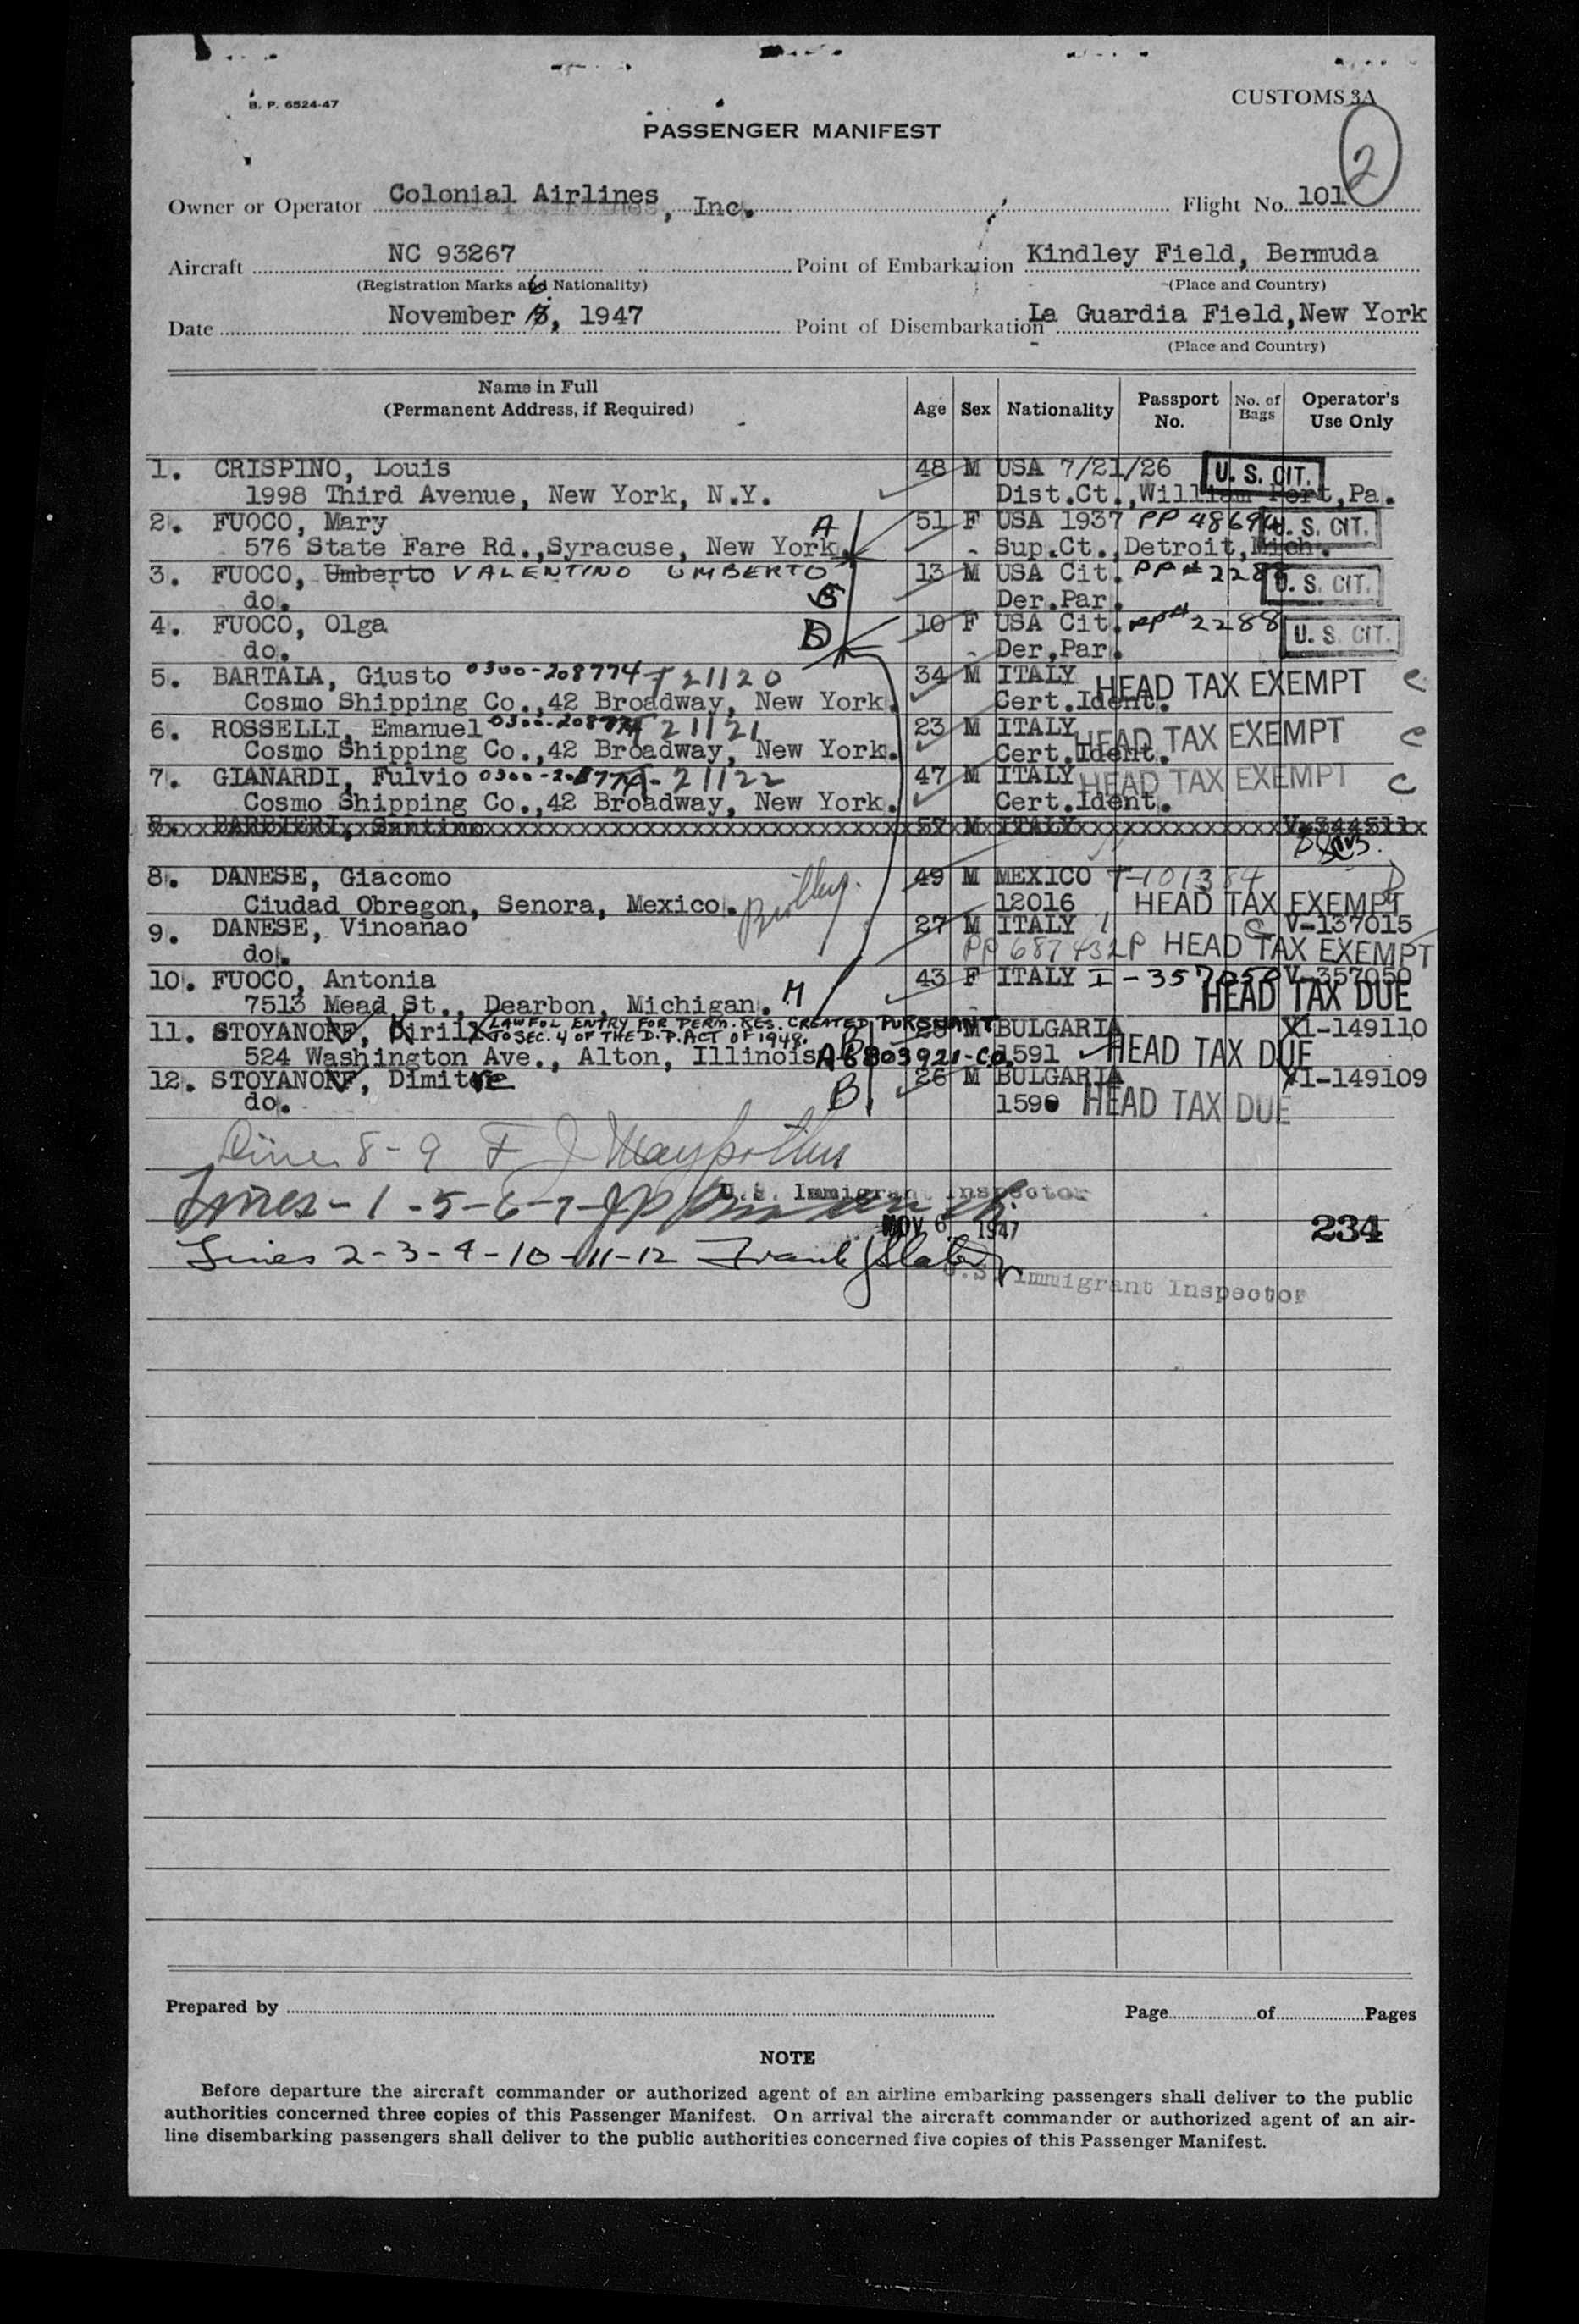 B. P. 6524-47
CUSTOMS 3A
2
PASSENGER MANIFEST
Owner or Operator Colonial Airlines, Inc. Flight No. 101
Aircraft NC 93267 Point of Embarkation Kindley Field, Bermuda
(Registration Marks and Nationality) (Place and Country)
Date November 6, 1947 Point of Disembarkation La Guardia Field, New York
(Place and Country)
Name in Full
(Permanent Address, if Required) Age Sex Nationality Passport No. No. of Bags Operator's Use Only
1. CRISPINO, Louis 48 M USA 7/21/26 U. S. CIT.
1998 Third Avenue, New York, N.Y. Dist.Ct.,William Port,Pa.
2. FUOCO, Mary A 51 F USA 1937 PP 48694 U. S. CIT.
576 State Fare Rd.,Syracuse, New York. Sup.Ct.,Detroit,Mich.
3. FUOCO, Umberto VALENTINO UMBERTO 13 M USA Cit. PP# 2288 U. S. CIT.
do. Der.Par.
4. FUOCO, Olga D 10 F USA Cit. PP# 2288 U. S. CIT.
do. Der,Par.
5. BARTALA, Giusto 0300-208774 T 21120 34 M ITALY HEAD TAX EXEMPT C
Cosmo Shipping Co.,42 Broadway, New York. Cert.Ident.
6. ROSSELLI, Emanuel 0300-208774 T 21121 23 M ITALY HEAD TAX EXEMPT C
Cosmo Shipping Co.,42 Broadway, New York. Cert.Ident.
7. GIANARDI, Fulvio 0300-208774 T-21122 47 M ITALY HEAD TAX EXEMPT C
Cosmo Shipping Co.,42 Broadway, New York. Cert.Ident.
8. BARBIERI, Santino 57 M ITALY V-344511
8. DANESE, Giacomo 49 M MEXICO T-101384 D
Ciudad Obregon, Senora, Mexico. 12016 HEAD TAX EXEMPT
9. DANESE, Vinoanao 27 M ITALY V-137015
do. PP 687432P HEAD TAX EXEMPT
10. FUOCO, Antonia 43 F ITALY I-357050 V-357050
7513 Mead St., Dearbon, Michigan. M HEAD TAX DUE
LAWFUL ENTRY FOR PERM. RES. CREATED PURSUANT
TO SEC. 4 OF THE D.P. ACT OF 1948.
11. STOYANOFF, Kiril M BULGARIA I-149110
524 Washington Ave., Alton, Illinois A6803921-CO. 1591 HEAD TAX DUE
12. STOYANOFF, Dimitre B 26 M BULGARIA I-149109
do. 1590 HEAD TAX DUE
Lines 8-9 F J
Lines-1-5-6-7- U.S. Immigrant Inspector
NOV 6 1947 234
Lines 2-3-4-10-11-12 Frank J
U.S. Immigrant Inspector
Prepared by Page of Pages
NOTE
Before departure the aircraft commander or authorized agent of an airline embarking passengers shall deliver to the public
authorities concerned three copies of this Passenger Manifest. On arrival the aircraft commander or authorized agent of an air-
line disembarking passengers shall deliver to the public authorities concerned five copies of this Passenger Manifest.